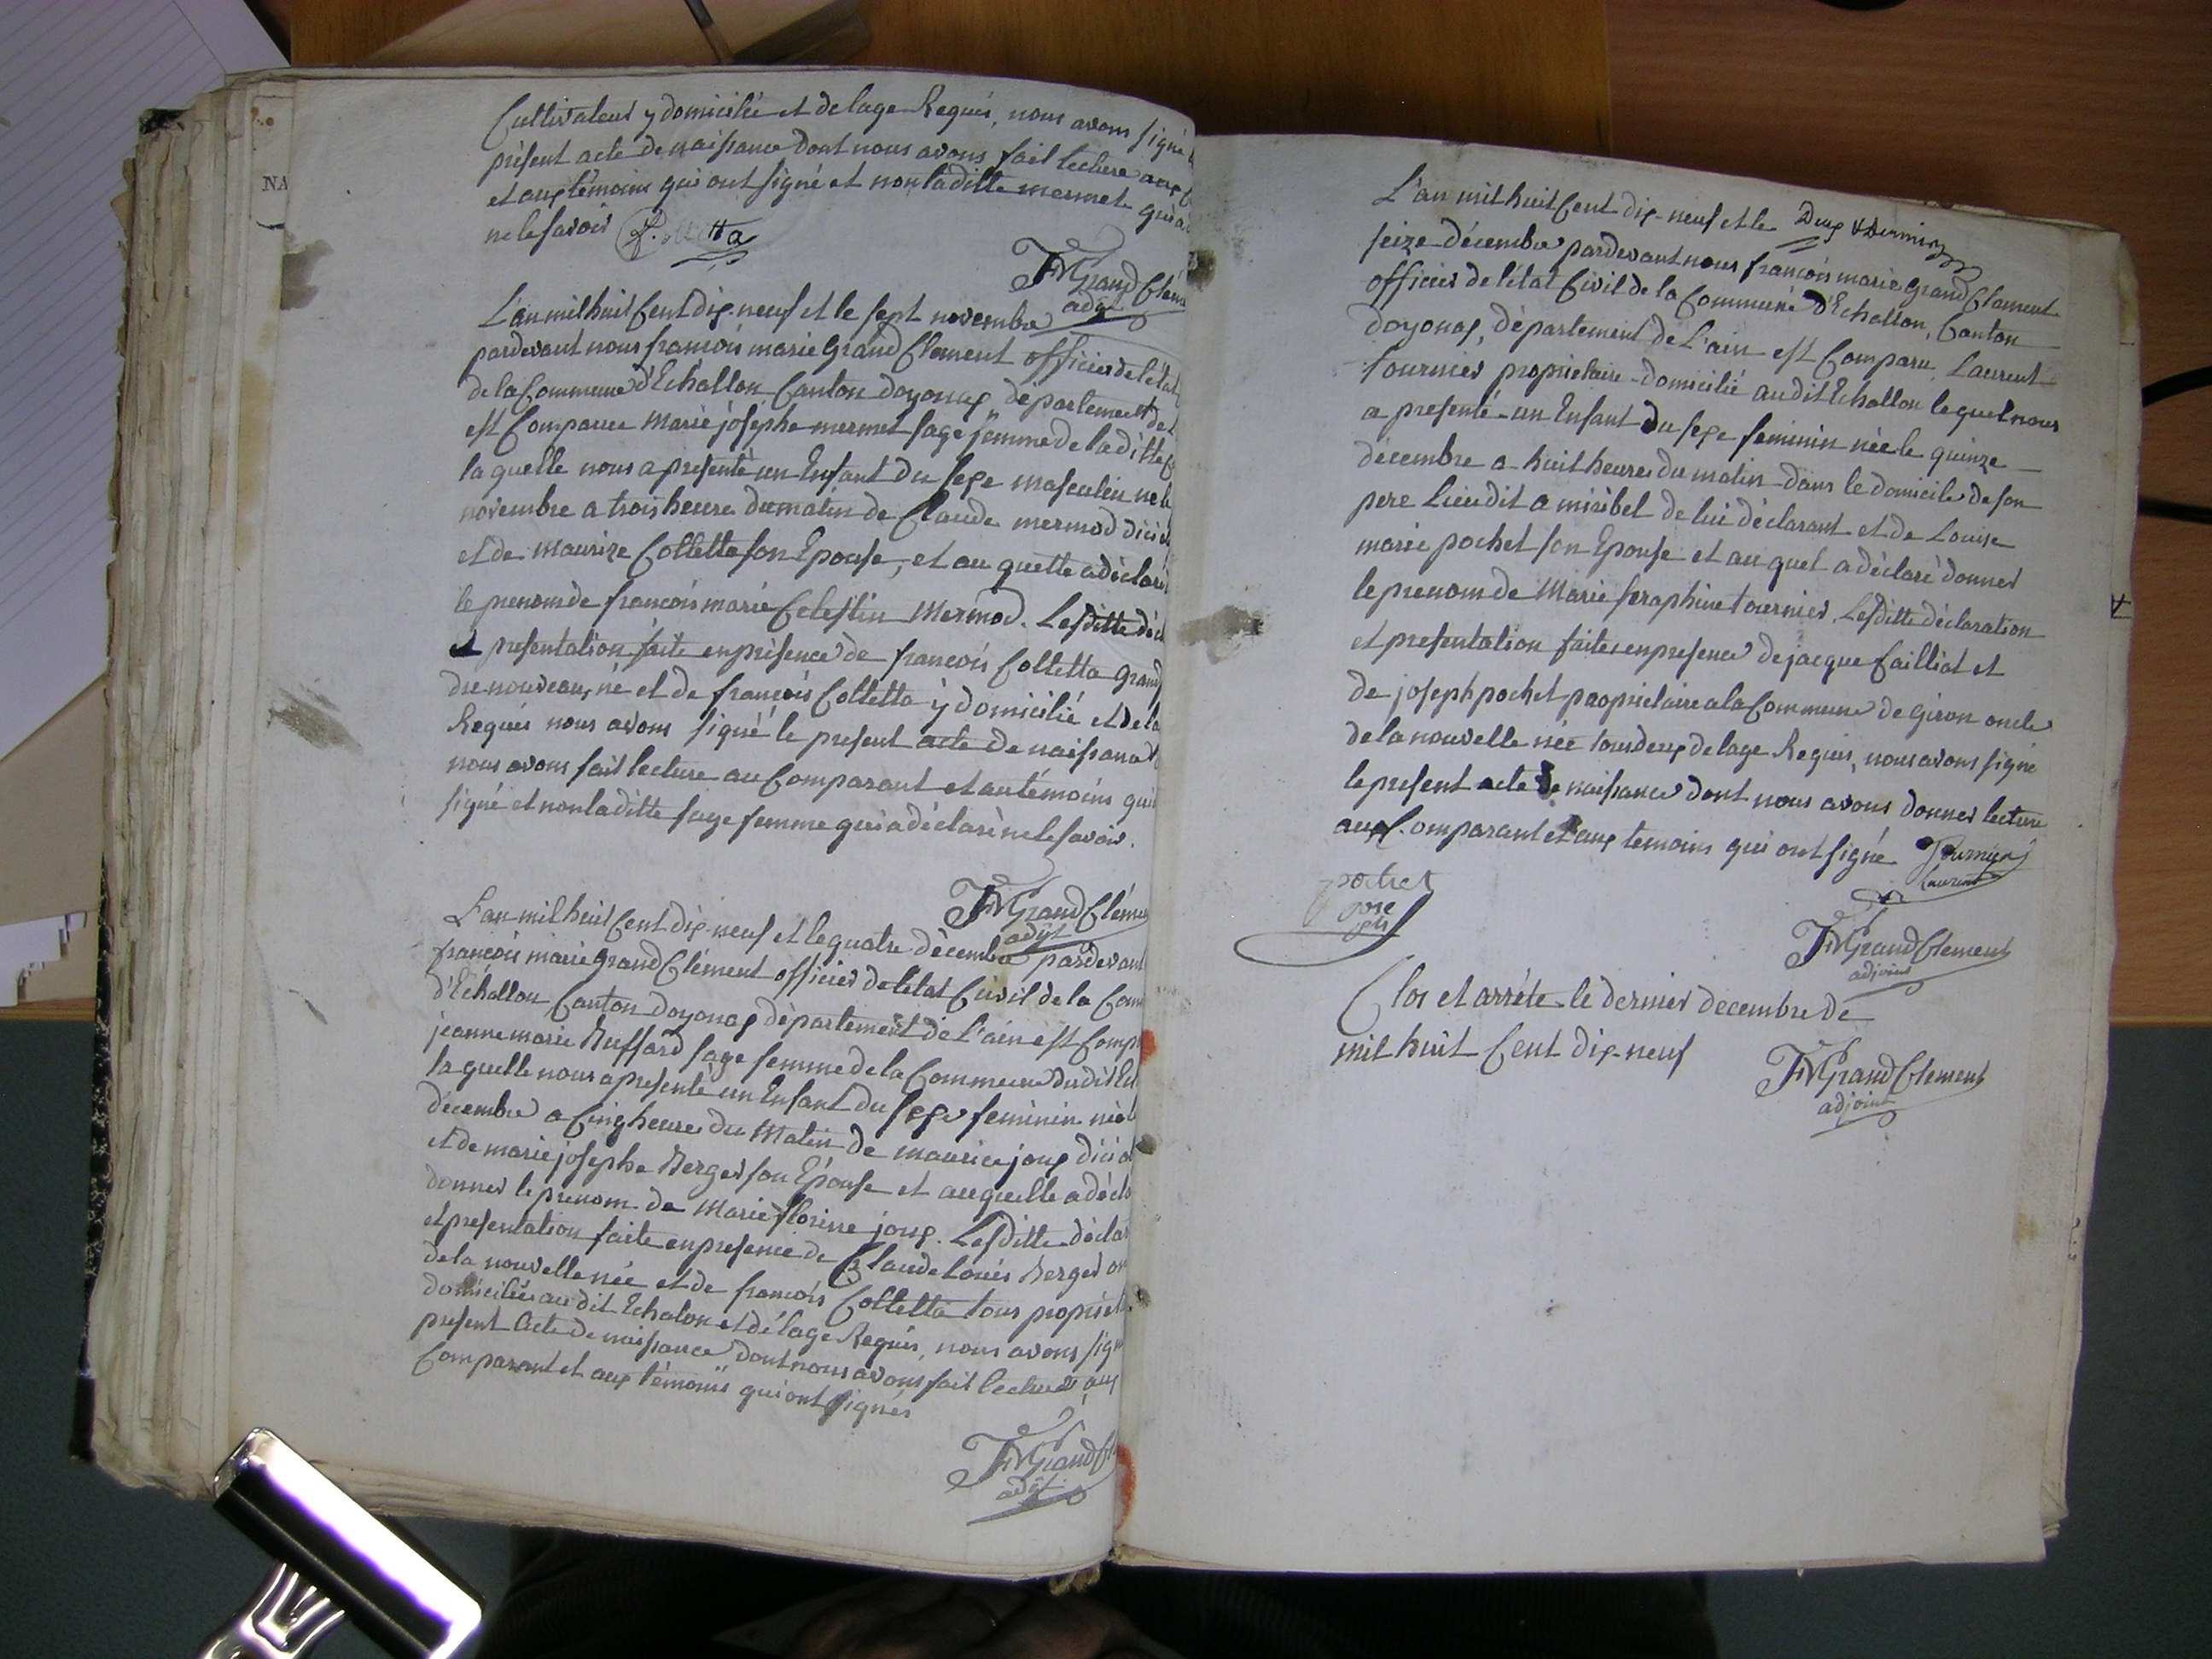 NA
Cultivateur y domicilié et de lage Requis, nous avons signé
présent acte de naissance dont nous avons fait lecture aux
et aux témoins qui ont signé et non laditte mermet qui a
ne le savoir
FM Grand Clém
adjt
L'an mil huit Cent dix-neuf et le sept novembre
pardevant nous françois marie Grand Clement officier de l'état
de la Commune d'Echallon Canton doyonax département de
est Comparue Marie josephe mermet sage femme de la ditte
la quelle nous a presenté un Enfant du sexe masculin né le
novembre a trois heure du matin de Claude mermod dici
et de Maurize Colletta son Epouse, et au quelle a déclaré
le prenom de francois marie Celestin Mermod. Lesditte décl
et presentation faite en présence de francois Colletta grand
du nouveau né et de francois Colletta y domicilié et de la
Requis nous avons signé le present acte de naissance
nous avons fait lecture au Comparant et au témoins qui
signé et non laditte sage femme qui a déclaré ne le savoir.
FM Grand Clémen
adjt
L'an mil huit Cent dix-neuf et le quatre décembre pardevant
francois marie Grand Clément officier de l'état Civil de la Com
d'Echallon Canton doyonax département de l'ain est Comp
jeanne marie Buffard sage femme de la Commune dudit Ech
la quelle nous a presenté un Enfant du sexe feminin née l
décembre a Cinq heure du Matin de maurice joux dici
et de marie josephe Berger son Epouse et au quelle a décl
donner le prenom de Marie florine joux. Lesditte déclar
et presentation faite en presence de Claude Louis Berger on
de la nouvelle née et de francois Colletta tous propriet
domiciliés au dit Echalon et de lage Requis, nous avons sign
present Acte de naissance dont nous avons fait lecture aux
Comparant et aux témoins qui ont signés
FM Grand Cl
adjt
L'an mil huit Cent dix-neuf et le Deux & dernier
seize décembre pardevant nous françois marie Grand Clement
officier de l'état Civil de la Commune d'Echallon, Canton
doyonax, département de L'ain est Comparu Laurent
tournier propriétaire domicilié audit Echallon lequel nous
a presenté un Enfant du sexe feminin née le quinze
décembre a huit heures du matin dans le domicile de son
pere Lieudit a miribel de lui déclarant et de Louise
marie pochet son Epouse et au quel a déclaré donner
le prenom de Marie seraphine tournier. Lesditte déclaration
et presentation faites en presence de jacque Failliat et
de joseph pochet propriétaire a la Commune de Giron oncle
de la nouvelle née tous deux de lage Requis, nous avons signé
le present acte de naissance dont nous avons donner lecture
aux Comparant et aux temoins qui ont signé
Tournier
Laurent
pochet
jose
ph
FM Grand Clement
adjoint
Clos et arrêté le dernier decembre de
mil huit Cent dix-neuf
FM Grand Clement
adjoint